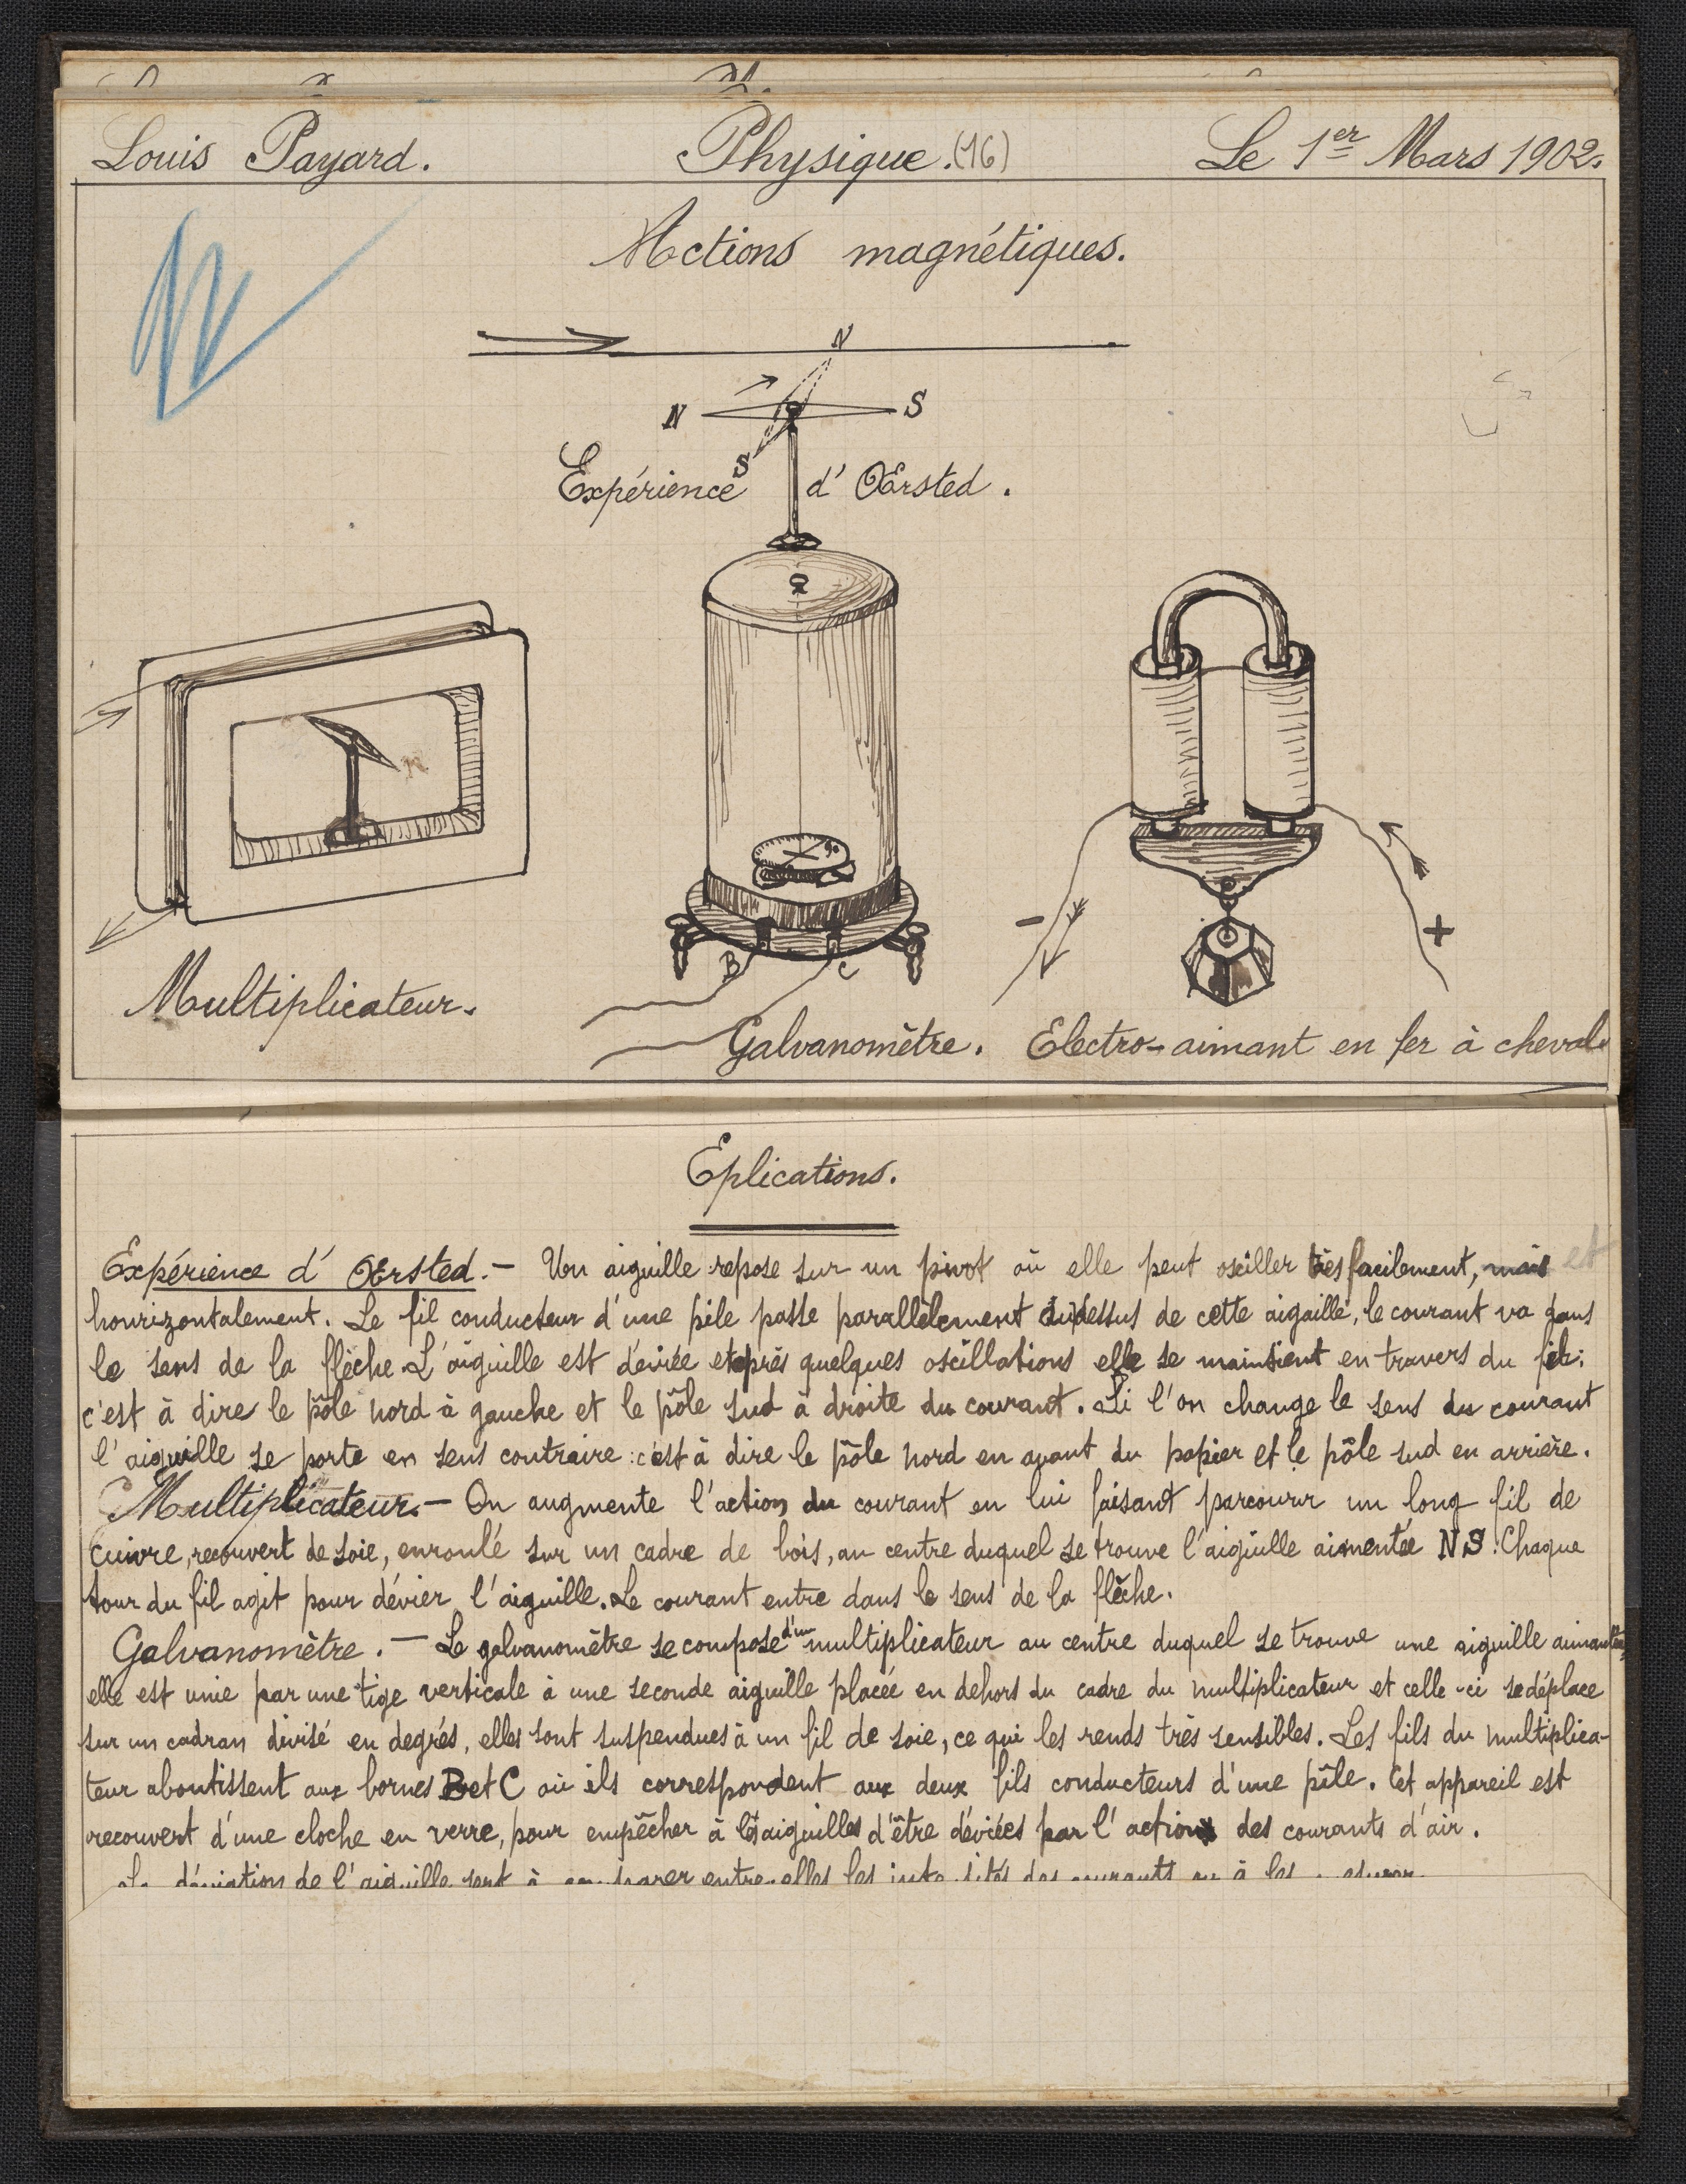 Louis Payard. Physique.(16) Le 1er Mars 1902.
Actions magnétiques.
N
N S
S
Expérience d' Œrsted.
90
B C
- +
Multiplicateur.
Galvanomètre. Electro-aimant en fer à cheval.
Eplications.
Expérience d' Œrsted. — Un aiguille repose sur un pivot où elle peut osciller très facilement, mais et
hourizontalement. Le fil conducteur d'une pile passe parallèlement au dessus de cette aigaille, le courant va dans
le sens de la flèche. L'aiguille est dévirée et après quelques oscillations elle se maintient en travers du fil:
c'est à dire le pôle nord à gauche et le pôle sud à droite du courant. Si l'on change le sens du courant
l'aiguille se porte en sens contraire : c'est à dire le pôle nord en avant du papier et le pôle sud en arrière.
Multiplicateur. — On augmente l'action du courant en lui faisant parcourir un long fil de
cuivre, recouvert de soie, enroulé sur un cadre de bois, au centre duquel se trouve l'aigiulle aimentée NS. Chaque
tour du fil agit pour dévier l'aiguille. Le courant entre dans le sens de la flèche.
Galvanomètre. — Le galvanomètre se compose d'un multiplicateur au centre duquel se trouve une aiguille aimantée,
elle est unie par une tige verticale à une seconde aiguille placée en dehors du cadre du multiplicateur et celle-ci se déplace
sur un cadran divisé en degrés, elles sont suspendues à un fil de soie, ce qui les rends très sensibles. Les fils du multiplica-
teur aboutissent aux bornes B et C où ils correspondent aux deux fils conducteurs d'une pîle. Cet appareil est
recouvert d'une cloche en verre, pour empêcher à les aiguilles d'être déviées par l'action des courants d'air.
La déviation de l'aiguille sert à comparer entre elles les intensités des courants ou à les mesurer.